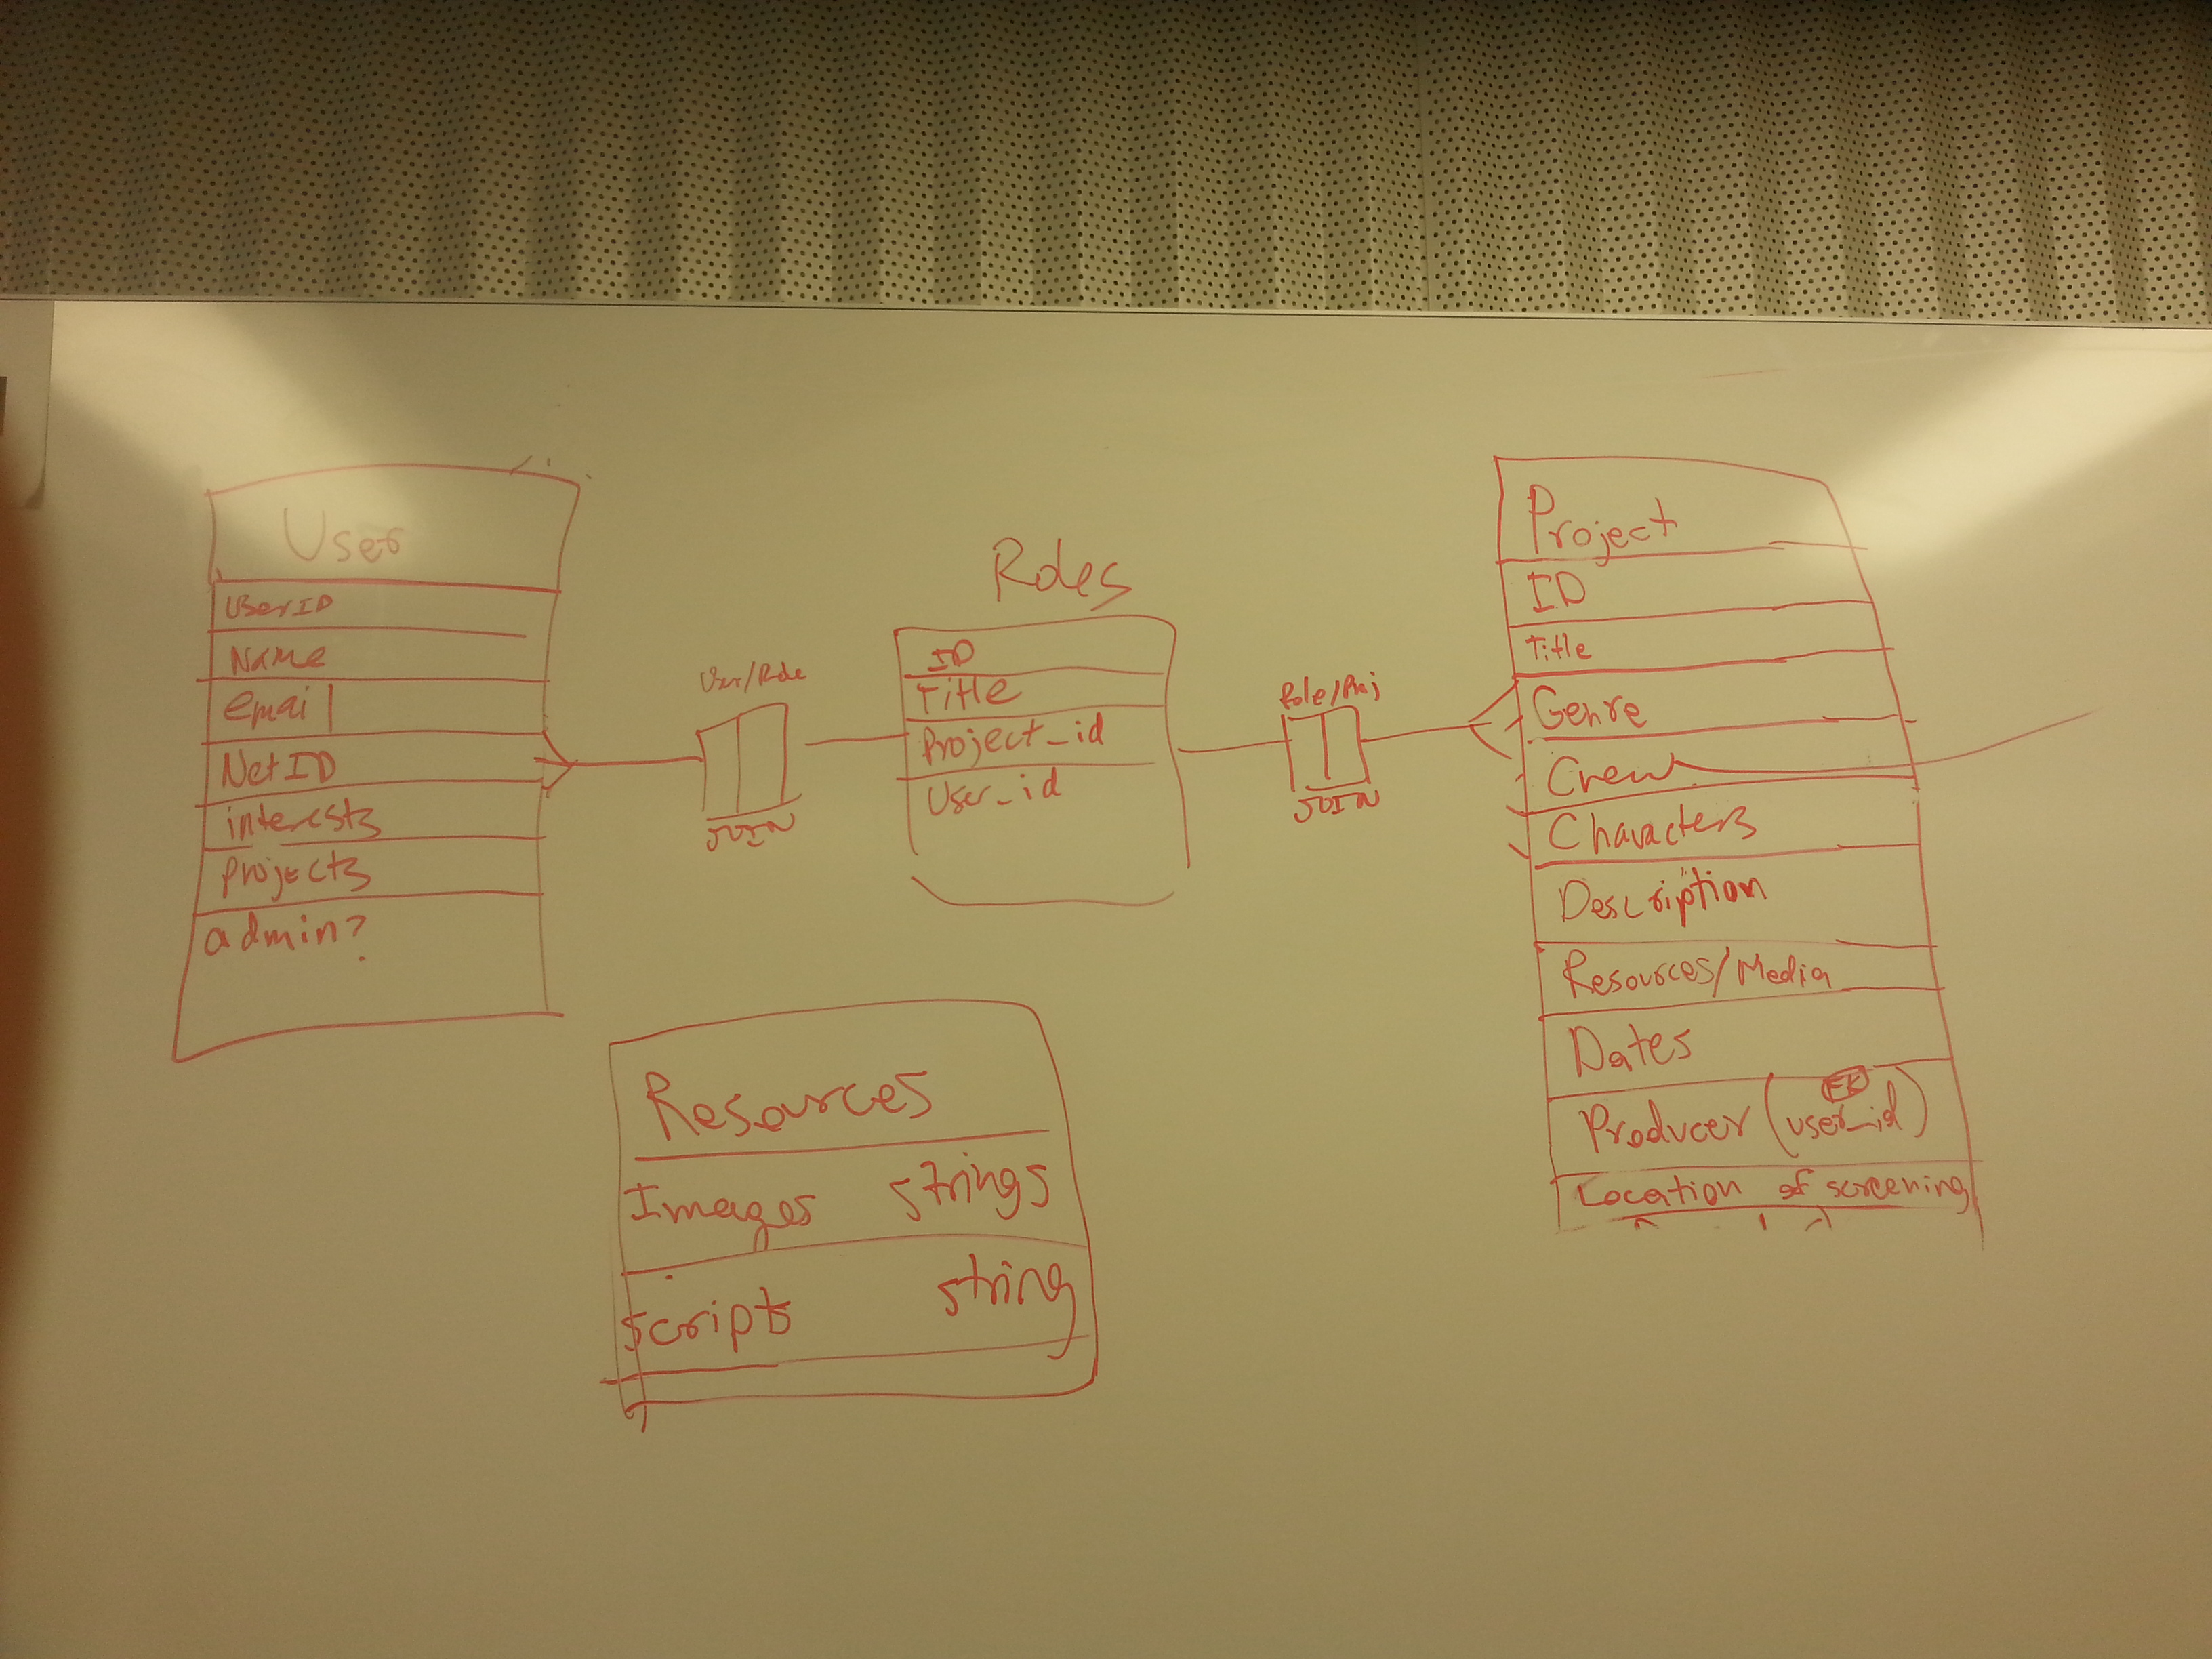 User
UserID
Name
email
NetID
interests
projects
admin?
User/Role
JOIN
Roles
ID
Title
Project_id
User_id
Role/Proj
JOIN
Project
ID
Title
Genre
Crew
Characters
Description
Resources/Media
Dates
FK
Producer (user_id)
Location of screening
Resources
Images strings
scripts string